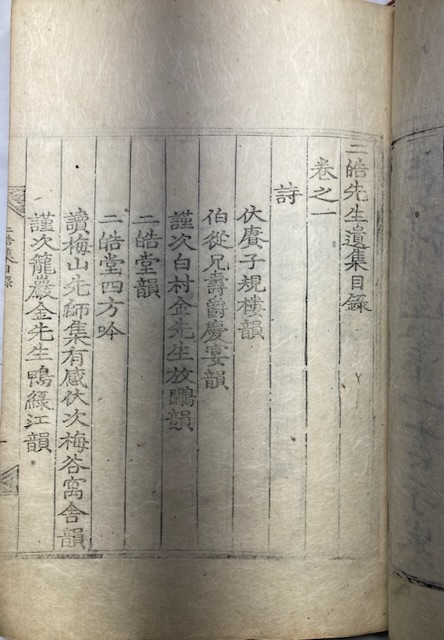 二皓先生遺集目錄
卷之一
詩
伏賡子規樓韻
伯從兄壽爵慶宴韻
謹次白村金先生放鵰韻
二皓堂韻
二皓堂四方吟
讀梅山先師集有感伏次梅谷寓舍韻
謹次籠巖金先生鴨綠江韻
二皓集目錄